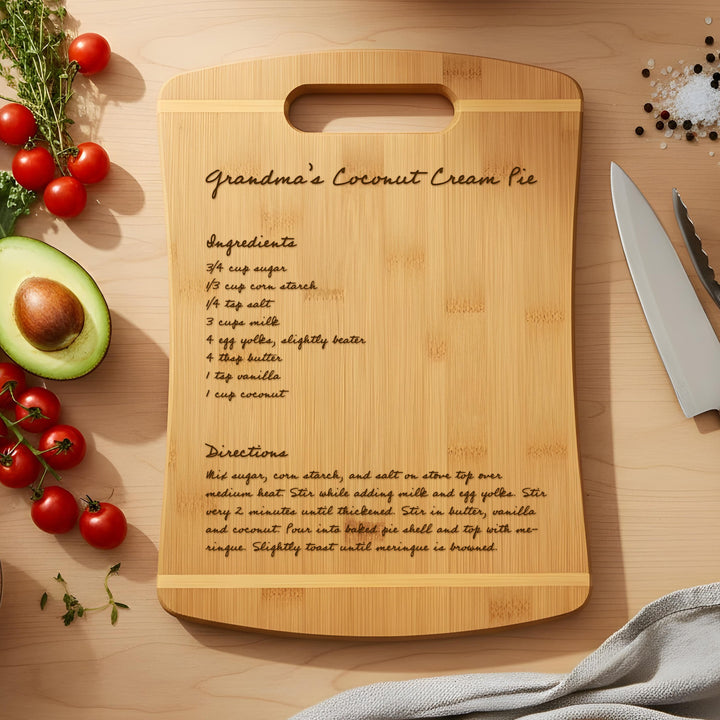 Grandma's Coconut Cream Pie
Ingredients
3/4 cup sugar
1/3 cup corn starch
1/4 tsp salt
3 cups milk
4 egg yolks, slightly beater
4 tbsp butter
1 tsp vanilla
1 cup coconut
Directions
Mix sugar, corn starch, and salt on stove top over
medium heat. Stir while adding milk and egg yolks. Stir
very 2 minutes until thickened. Stir in butter, vanilla
and coconut. Pour into baked pie shell and top with me-
ringue. Slightly toast until meringue is browned.